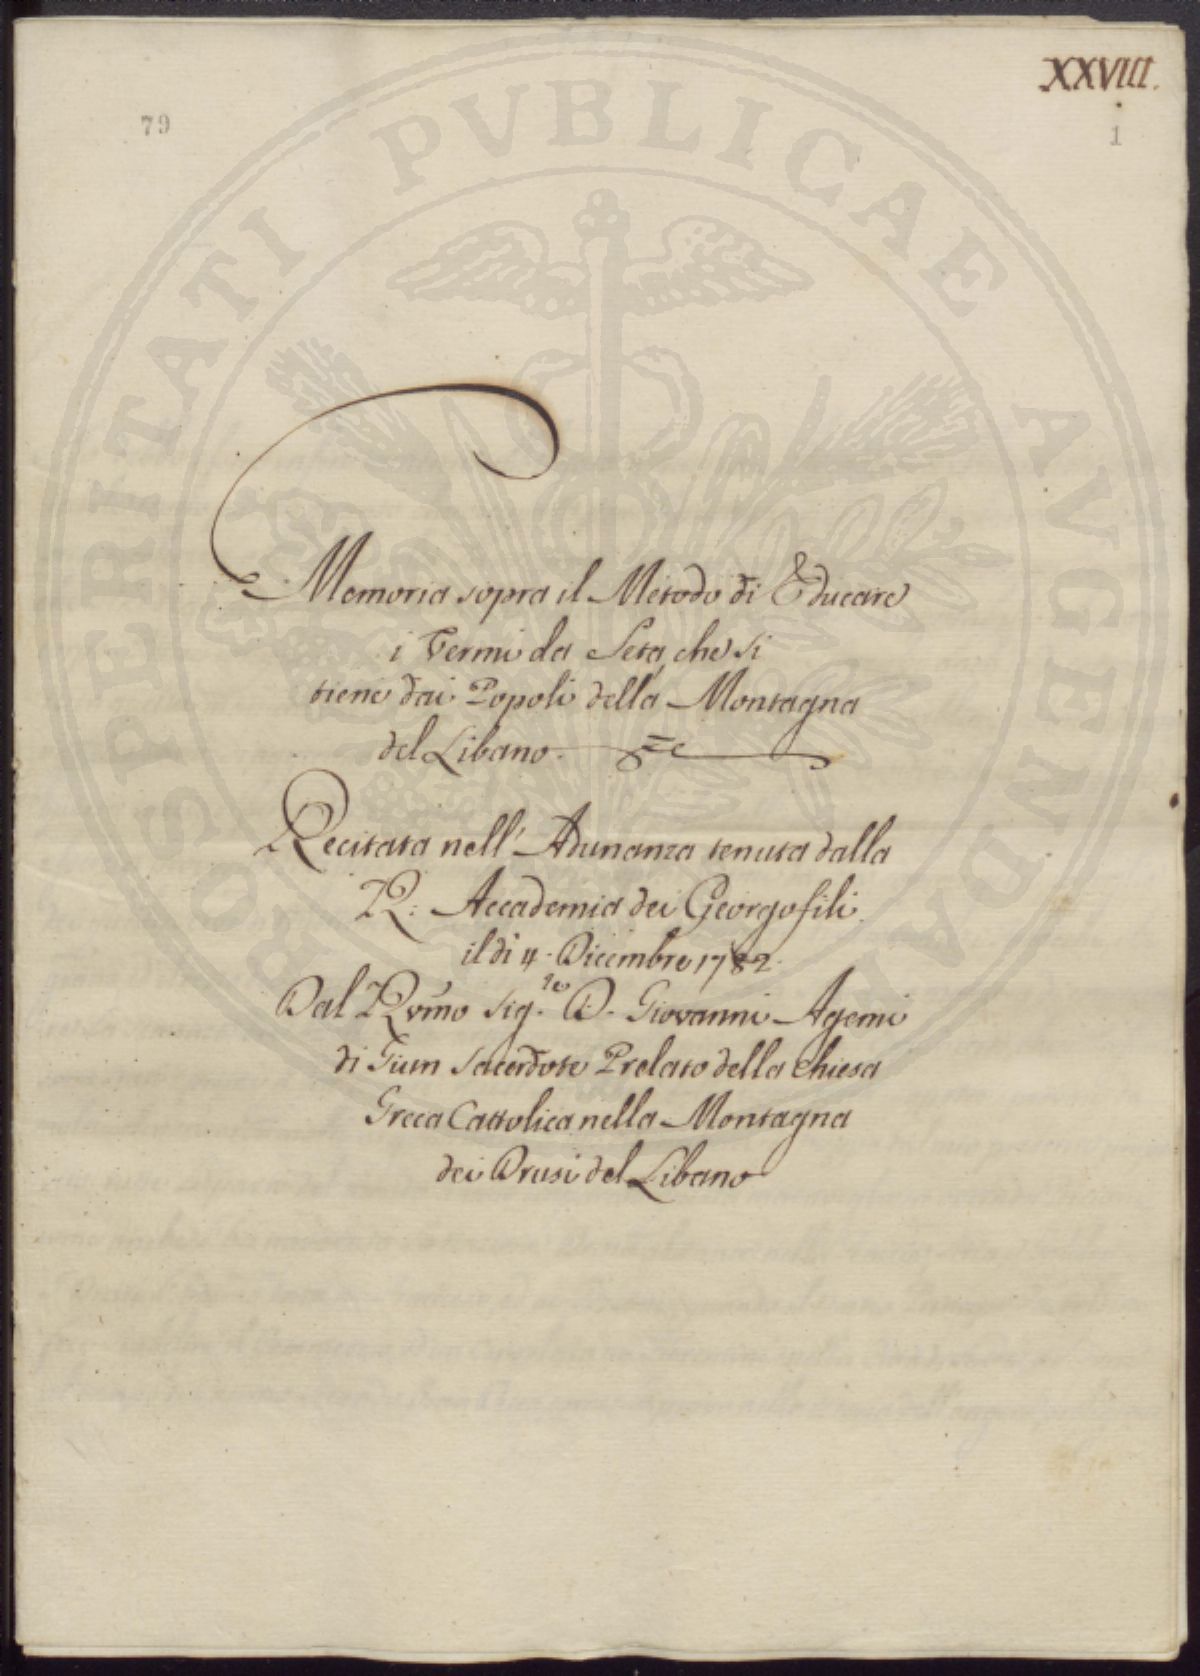 XXVIII.
79
1
PROSPERITATI PVBLICAE AVGENDAE
Memoria sopra il Metodo di Educare
i Vermi da Seta, che si
tiene dai Popoli della Montagna
del Libano.
Recitata nell' Adunanza tenuta dalla
R: Accademia dei Georgofili
il di 4. Dicembre 1782.
Dal Rvmo Sig.re D. Giovanni Agemi
di Giun Sacerdote Prelato della Chiesa
Greca Cattolica nella Montagna
dei Drusi del Libano